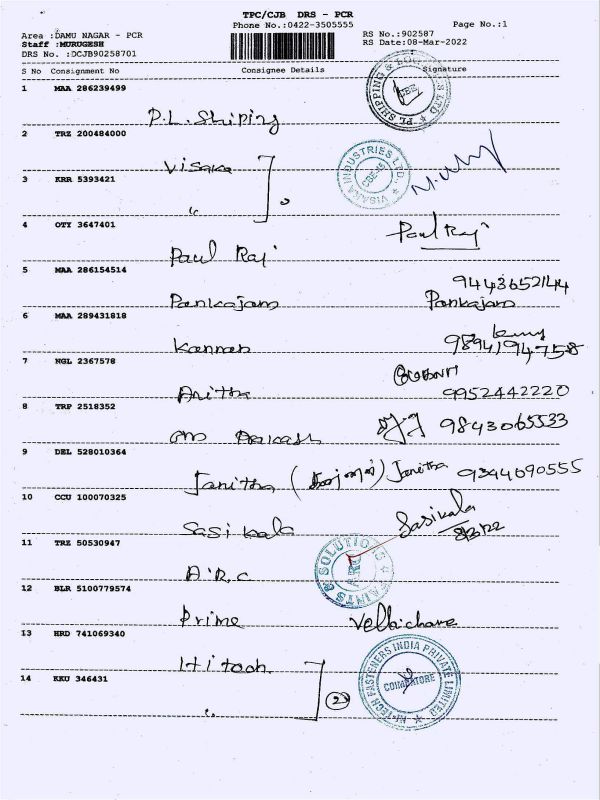 TPC/CJB DRS - PCR
Phone No.:0422-3505555
Page No.:1
Area :DAMU NAGAR - PCR
Staff :MURUGESH
DRS No. :DCJB90258701
RS No.:902587
RS Date:08-Mar-2022
S No Consignment No Consignee Details Signature
1 MAA 286239499
P.L. Shiping
2 TRZ 200484000
Visaka
VISAKA INDUSTRIES LTD.
CBE-45
3 KRR 5393421
"
4 OTY 3647401
Paul Raj Paul Raj
5 MAA 286154514
9443652144
Pankajam Pankajam
6 MAA 289431818
Kannan 9894194758
7 NGL 2367578
Anitha 9952442220
8 TRP 2518352
Prakash 9843065533
9 DEL 528010364
Janitha Janitha 9344690555
10 CCU 100070325
Sasikala Sasikala
8/3/22
11 TRZ 50530947
A.R.C
PAINTS & SOLUTIONS
12 BLR 5100779574
Prime Vellaichamy
13 HRD 741069340
Hitech
HI-TECH FASTENERS INDIA PRIVATE LIMITED
COIMBATORE
14 KKU 346431
" 2